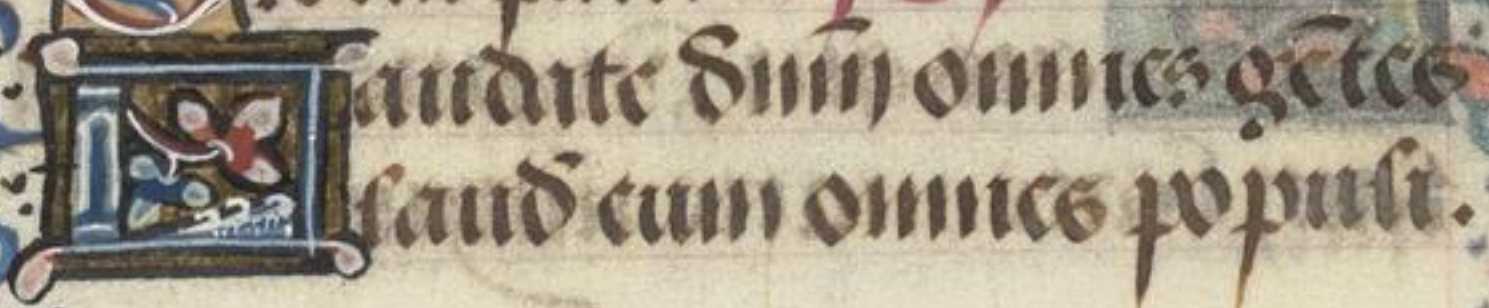 Laudate dn̄m omnes gētes
laud̄ eum omnes populi.